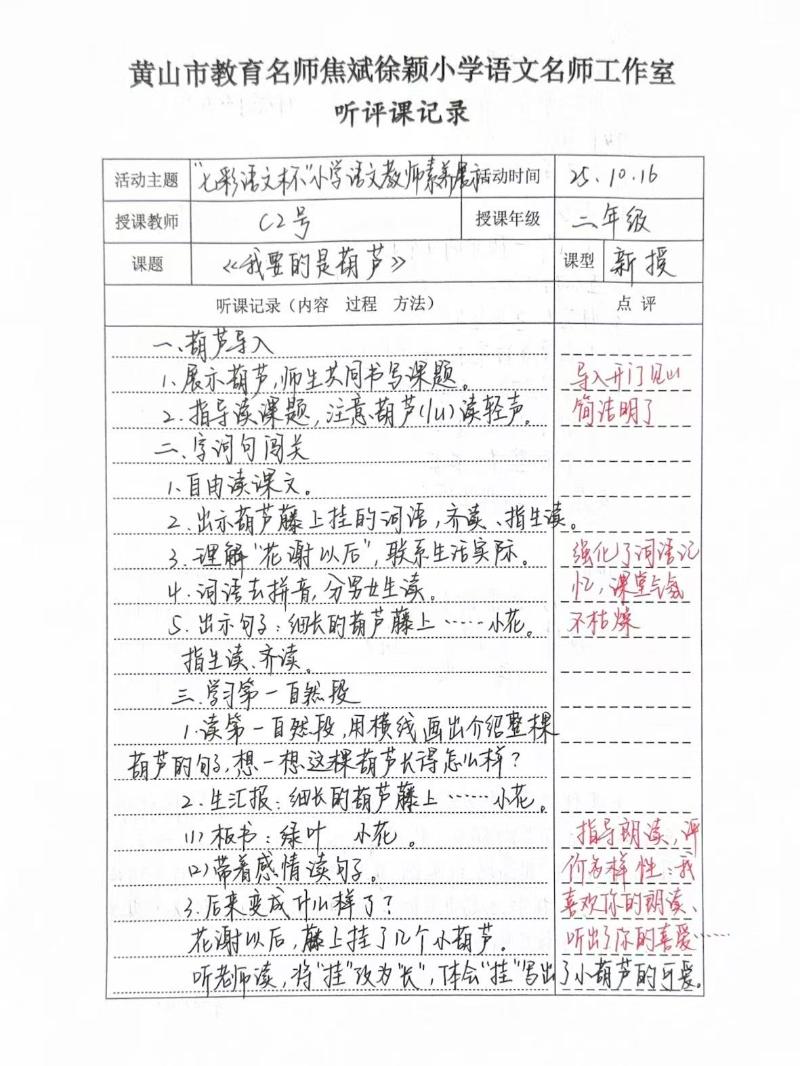 黄山市教育名师焦斌徐颖小学语文名师工作室
听评课记录
活动主题 “七彩语文杯”小学语文教师素养展示 活动时间 25.10.16
授课教师 C2号 授课年级 二年级
课题 《我要的是葫芦》 课型 新授
听课记录（内容 过程 方法） 点评
一、葫芦导入
1、展示葫芦，师生共同书写课题。 导入开门见山
2、指导读课题，注意葫芦(lu)读轻声。 简洁明了
二、字词句闯关
1、自由读课文。
2、出示葫芦藤上挂的词语，齐读、指生读。
3、理解“花谢以后”，联系生活实际。 强化了词语记
4、词语去拼音，分男女生读。 忆，课堂气氛
5、出示句子：细长的葫芦藤上……小花。 不枯燥
指生读、齐读。
三、学习第一自然段
1、读第一自然段，用横线画出介绍整棵
葫芦的句子，想一想这棵葫芦长得怎么样？
2、生汇报：细长的葫芦藤上……小花。
(1)板书：绿叶 小花。 指导朗读，评
(2)带着感情读句子。 价多样性：我
3、后来变成什么样了？ 喜欢你的朗读、
花谢以后，藤上挂了几个小葫芦。 听出了你的喜爱……
听老师读，将“挂”改为“长”，体会“挂”写出了小葫芦的可爱。